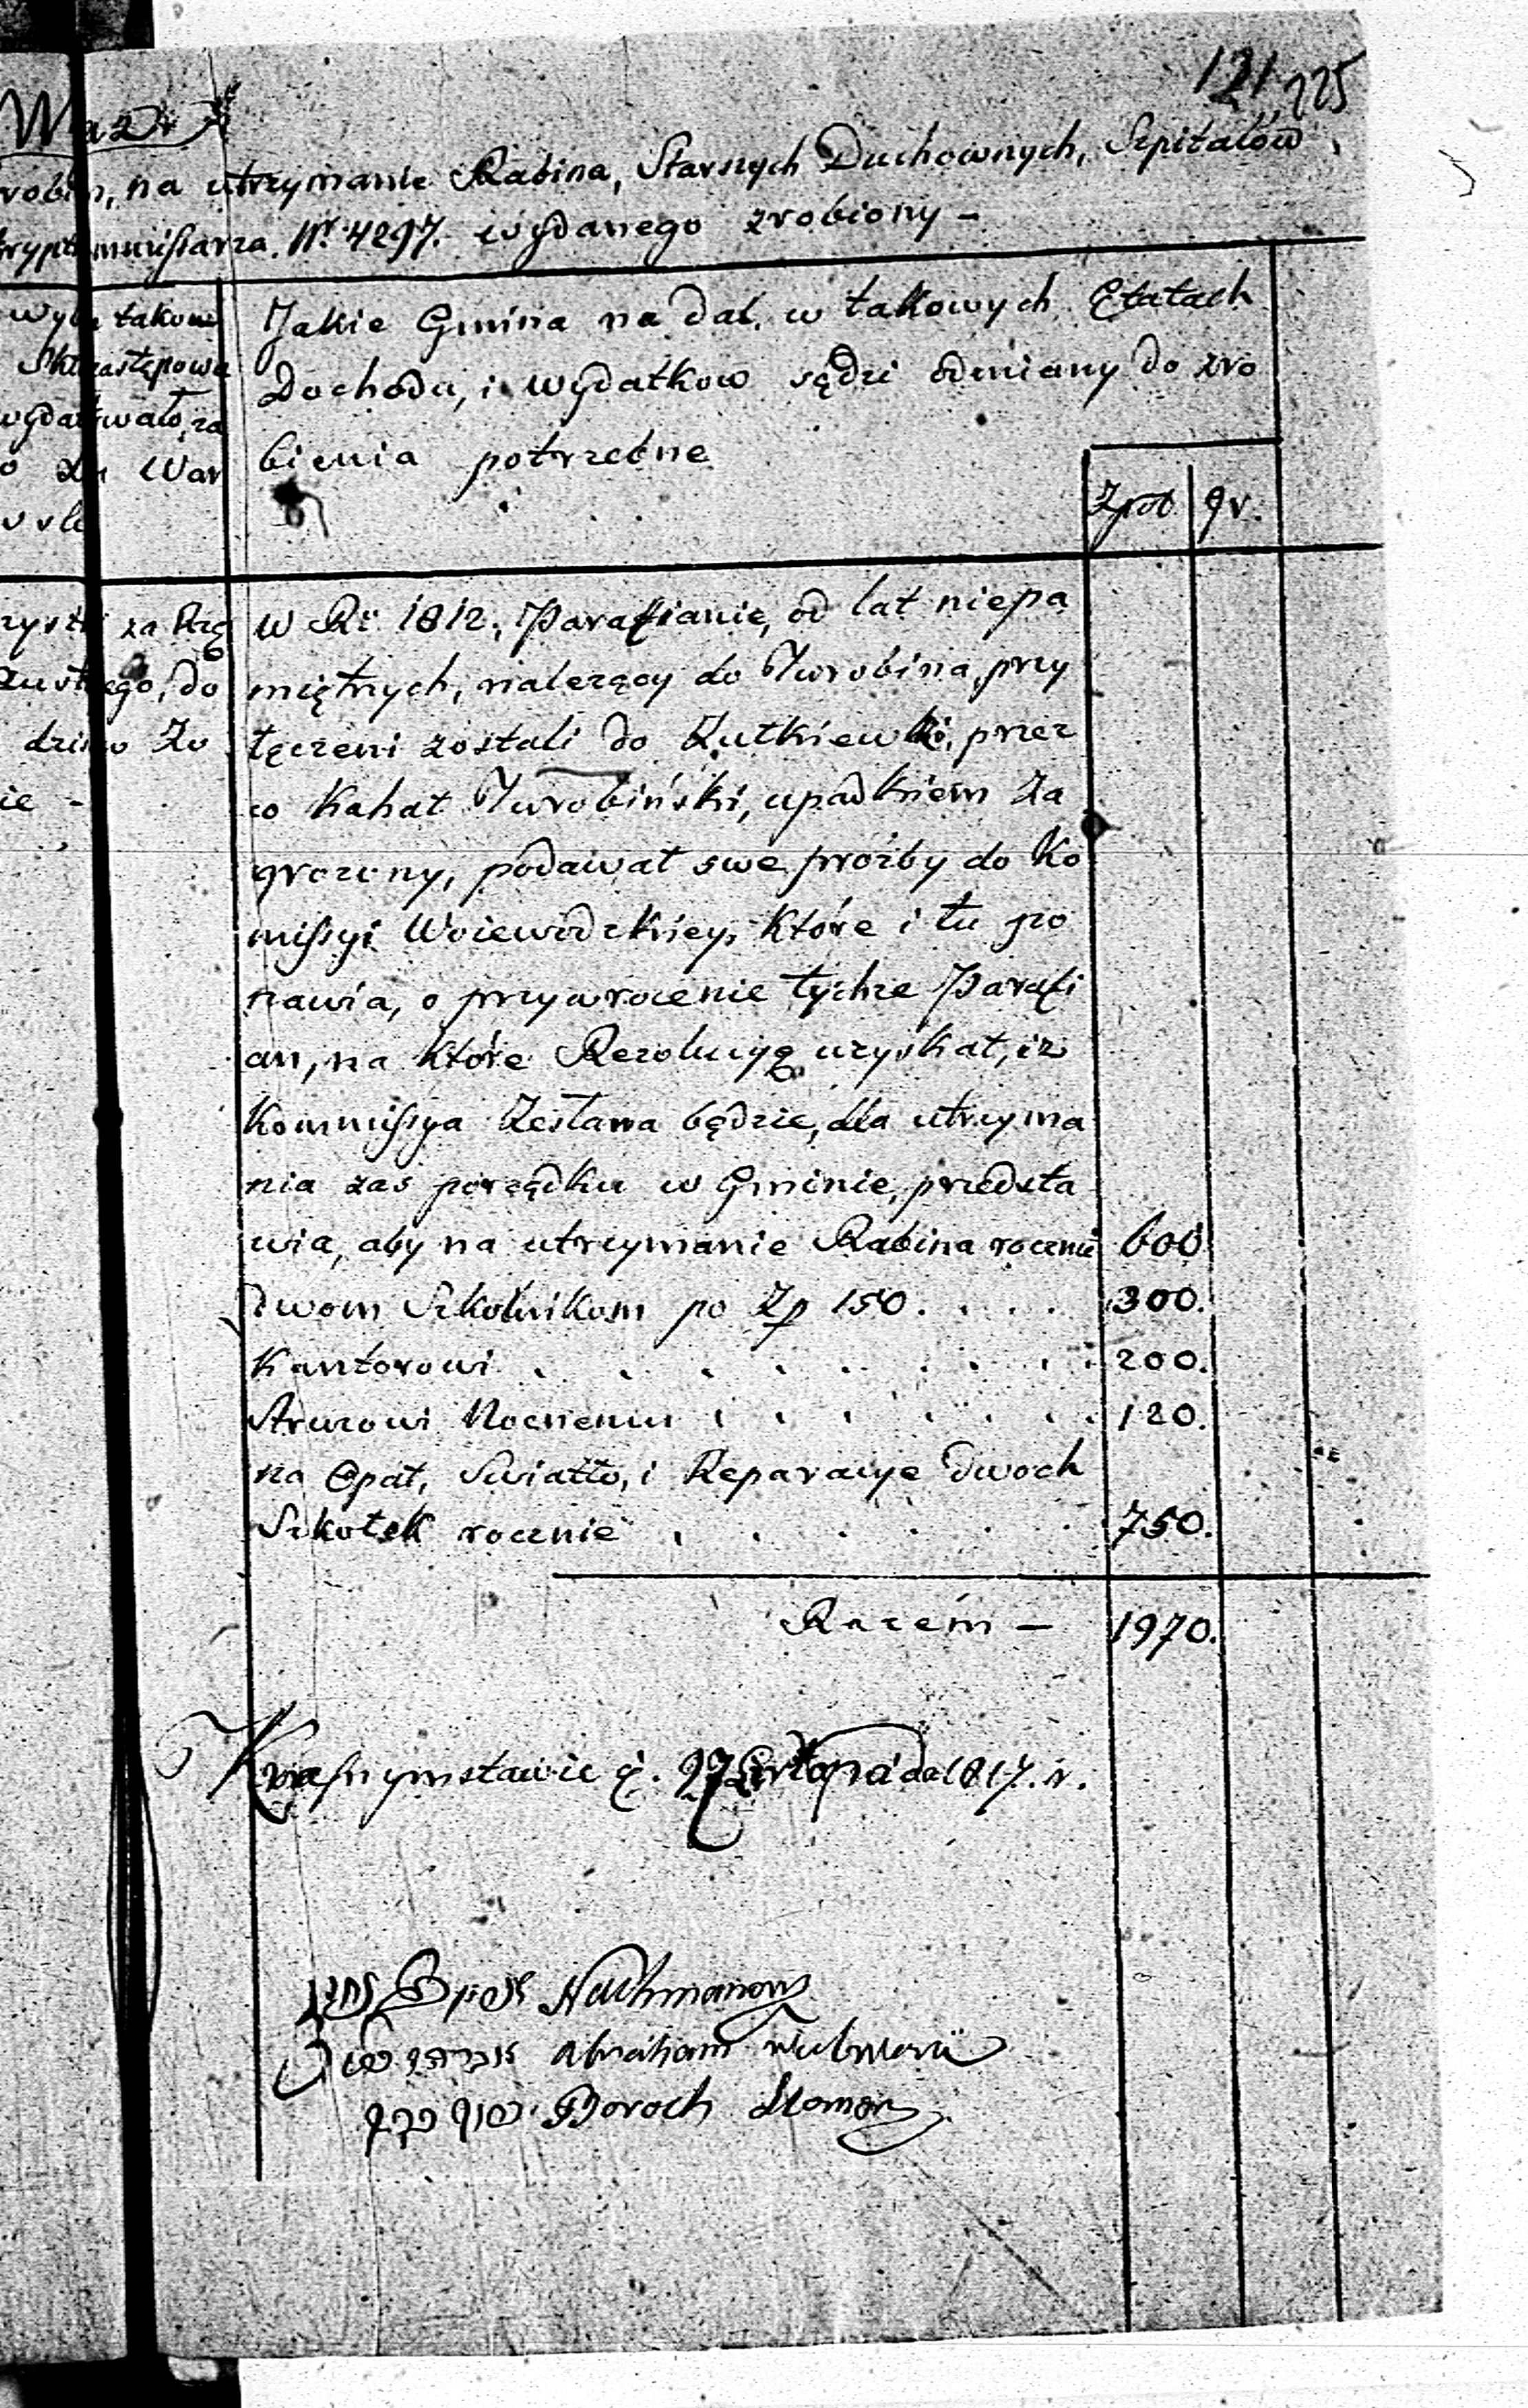 121 225
na utrzymanie Rabina, Starszych Duchownych, Szpitalów,
Nr. 4297. wydanego zrobiony —
Jakie Gmina na dal. w takowych Etatach
Dochodu, i wydatkow sądzi odmiany do zro
bienia potrzebne
Zpol gr.
W Rũ 1812, Parafianie, od lat niepa
miętnych, nalezący do Turobina, przy
łęczeni zostali do Żułkiewki, przez
co Kahał Turobiński, upadkiem za
grozony, podawał swe prozby do Ko
missyi Woiewodzkiey, które i tu po
nawia, o przywrocenie tychze Parafi
an, na które Rezolucyą uzyskał, iz
Kommissya Zesłana będzie, dla utrzyma
nia zas porządku w Gminie, przedsta
wia, aby na utrzymanie Rabina rocznie 600
dwom Szkolnikom po Zp 150 . . . . 300.
Kantorowi . . . . . . . . 200.
Struzowi Nocnemu . . . . . . . 120.
na Opał, Swiatło, i Reparacye dwoch
Szkołek rocznie . . . . . . 750.
Razem — 1970.
Krasnymstawie d. 27 Listopada 1817. r.
Nachmanowicz
אברהם Abraham
ברוך Boroch